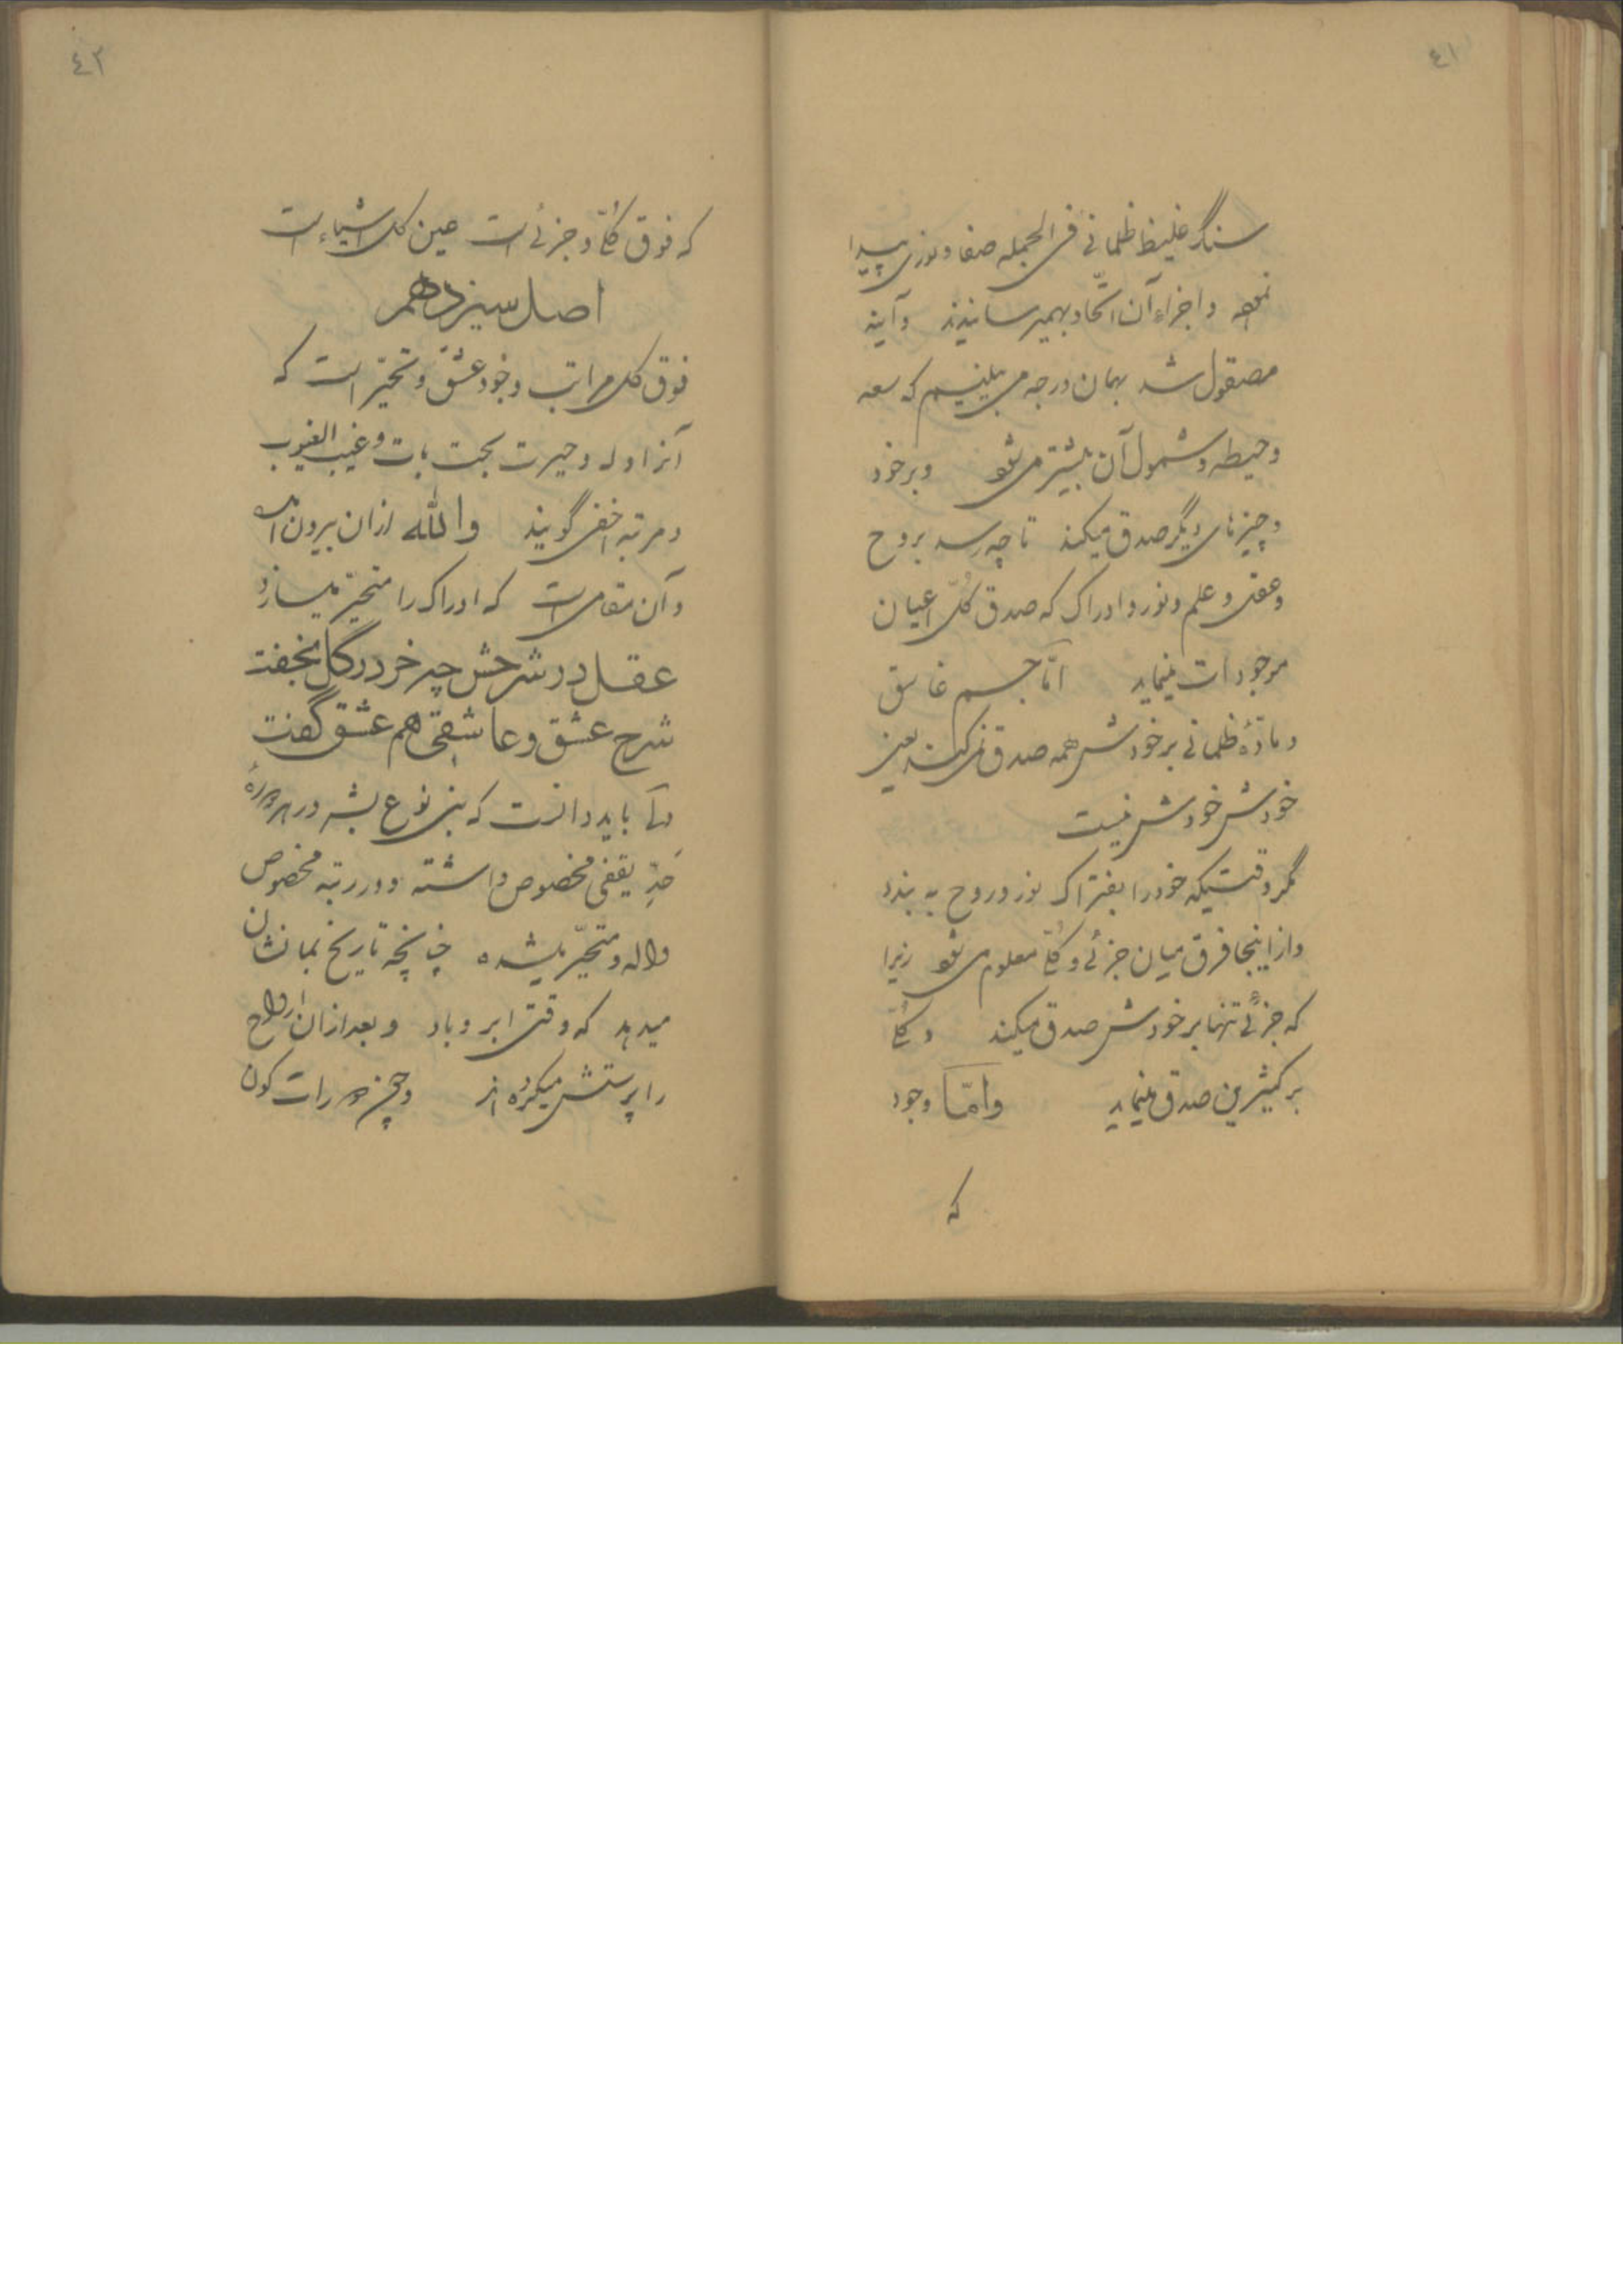 ٤١
سنگ غلیظ ظلمانی فی الجمله صفا و نوری پیدا
نمود و اجزاء آن اتّحاد بهمرسانیدند و آینه
مصقول شد بهمان درجه می بینیم که سعه
و حیطه و شمول آن بیشتر می شود و بر خود
و چیزهای دیگر صدق میکند تا چه رسد بروح
و عقل و علم و نور و ادراک که صدق کُلّ اعیان
موجودات مینماید امّا جسم غاسق
و مادّهٔ ظلمانی بر خودش همه صدق نمی کند یعنی
خودش خودش نیست
مگر وقتیکه خود را بفتراک نور و روح به بندد
و از اینجا فرق میان جزئی و کُلّی معلوم می شود زیرا
که جزئی تنها بر خودش صدق میکند و کُلّی
بر کثیرین صدق مینماید و امّا وجود
که
٤٢
که فوق کُلّی و جزئی است عین کل اشیاء است
اصل سیزدهم
فوق کل مراتب وجود عشق و تحیّر است که
آنرا وله و حیرت بحت بات و غیب الغیوب
و مرتبه اخفی گویند والله ازان بیرون است
و آن مقامی است که ادراک را متحیّر میسازد
عقل در شرحش چو خر در گل بخفت
شرح عشق و عاشقی هم عشق گفت
باید دانست که بنی نوع بشر در هر دوره
حَدِّ یقفی مخصوص داشته و در رتبه مخصوص
واله و متحیّر میشده چنانچه تاریخ بما نشان
میدهد که وقتی ابر و باد و بعد ازان ارواح
را پرستش میکرده اند و چون کون